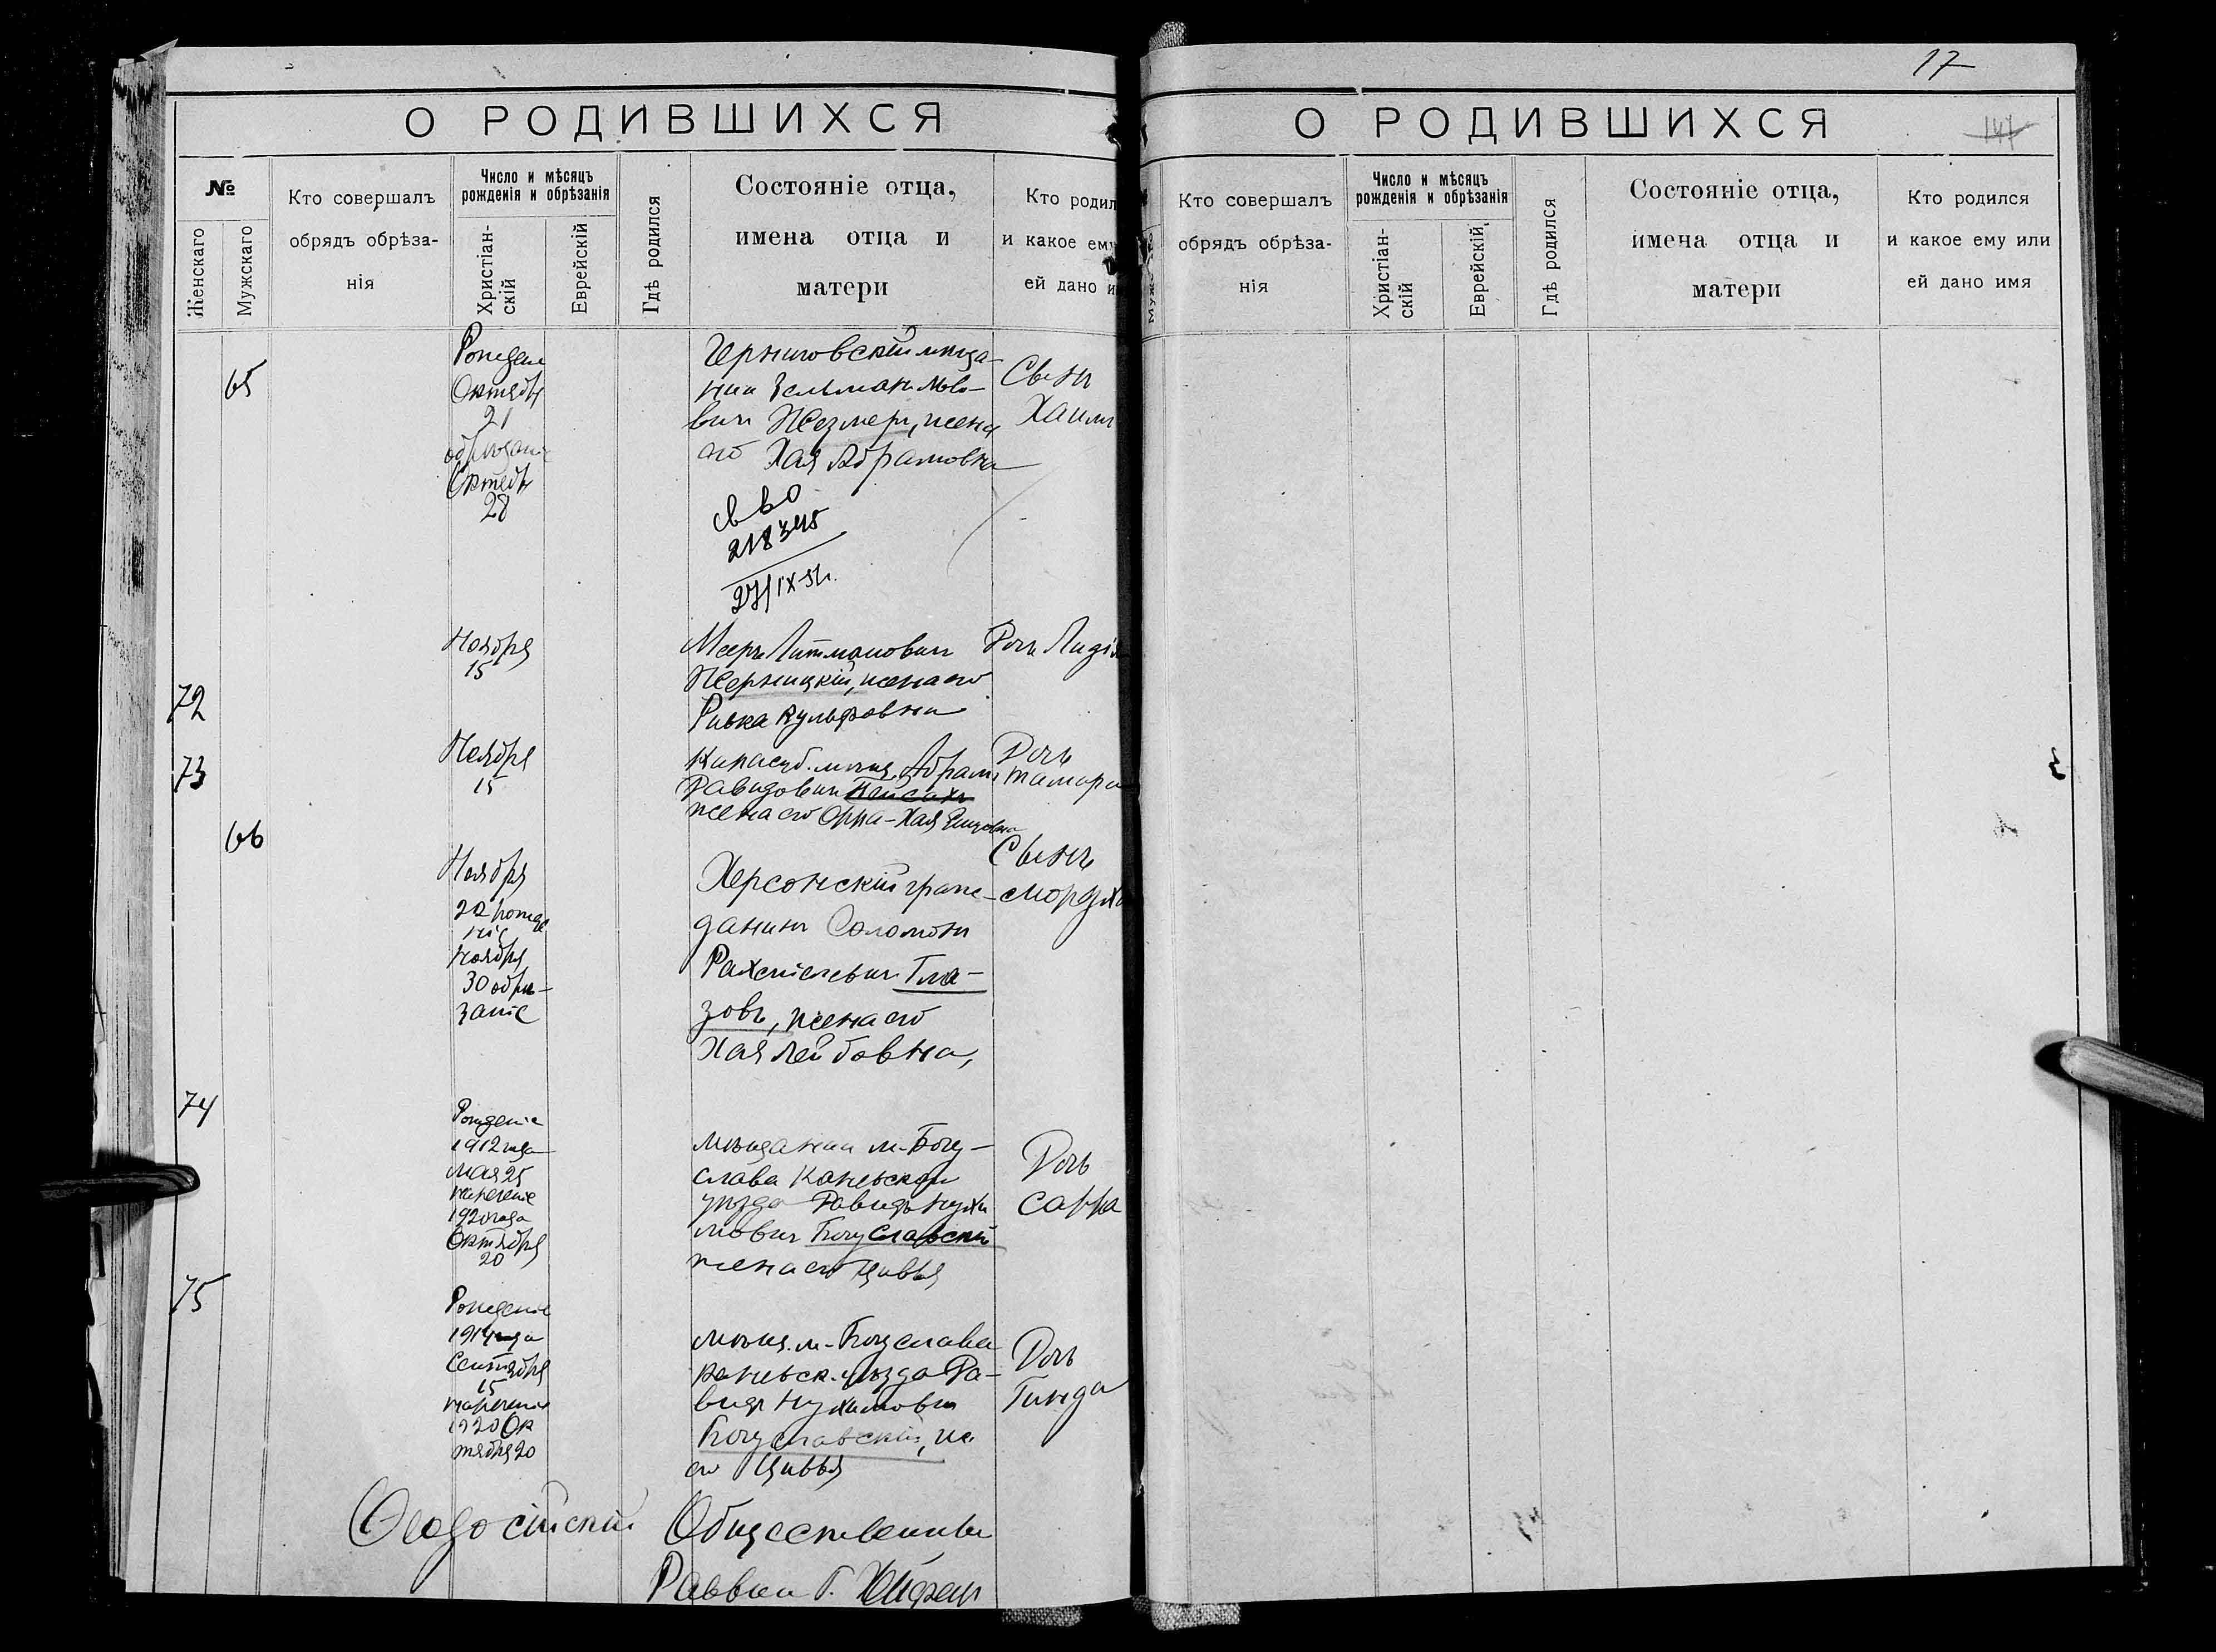 17
О РОДИВШИХСЯ
№
Женскаго
Мужскаго
Кто совершалъ
обрядъ обрѣза-
нія
Число и мѣсяцъ
рожденія и обрѣзанія
Христіан-
скій
Еврейскій
Гдѣ родился
Состояніе отца,
имена отца и
матери
Кто родил
и какое ему
ей дано и
65
Октября
21
Октября
28
Черниговскій мѣща-
нин Зельман
вич Незмер, жена
его Хая Абрамовна
Сынъ
Хаимъ
218345
27/IX
72
Ноября
15
Меер Литманович
Жерницкій, жена его
Ривка Вульфовна
Дочь Лидія
73
Ноября
15
Карасуб. мѣщ. Абрамъ
Давидович Пейсахъ
жена его Хая
Дочь
Тамара
66
Ноября
22 рожде
ніе
Ноября
30 обрѣ-
заніе
Херсонскій граж-
данинъ Соломонъ
Гла-
зовъ, жена его
Хая Лейбовна,
Сынъ
Мордух
74
Рожденіе
1912 года
мая 25
наречение
1920 года
Октября
20
мѣщанин м. Богу-
слава Каневскаго
уезда Давидъ Нухи
мович Богуславскій
жена его Цивья
Дочь
Сарра
75
Рожденіе
1914 года
Сентября
15
наречение
1920 Ок
тября 20
мѣщ. м. Богуслава
Каневск. уезда Да-
видъ Нухимович
Богуславскій, же
его Цивья
Дочь
Гинда
Феодосійскій Общественный
Раввин Г. Хейфец
О РОДИВШИХСЯ
147
Кто совершалъ
обрядъ обрѣза-
нія
Число и мѣсяцъ
рожденія и обрѣзанія
Христіан-
скій
Еврейскій
Гдѣ родился
Состояніе отца,
имена отца и
матери
Кто родился
и какое ему или
ей дано имя